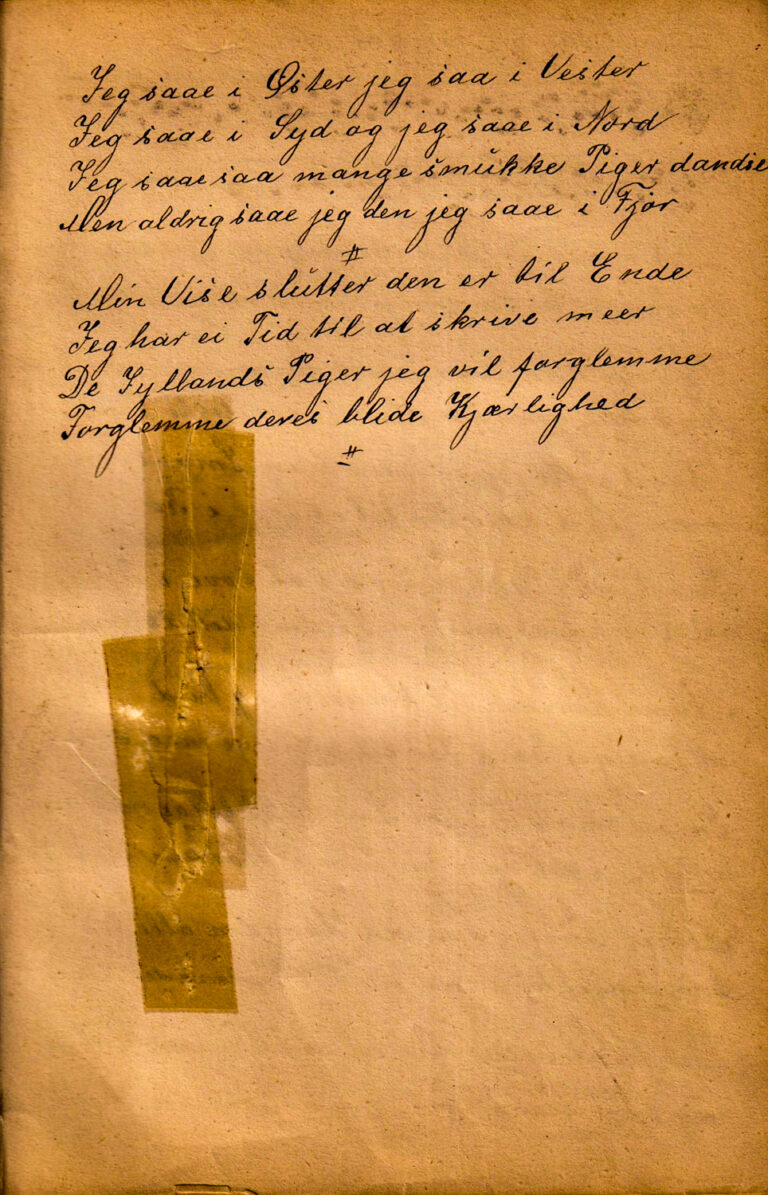 Jeg saae i Øster jeg saa i Vester
Jeg saae i Syd og jeg saae i Nord
Jeg saae saa mange smukke Piger dandse
Men aldrig saae jeg den jeg saae i Fjor
#
Min Vise slutter den er til Ende
Jeg har ei Tid til at skrive meer
De Jyllands Piger jeg vil forglemme
Forglemme deres blide Kjærlighed
#